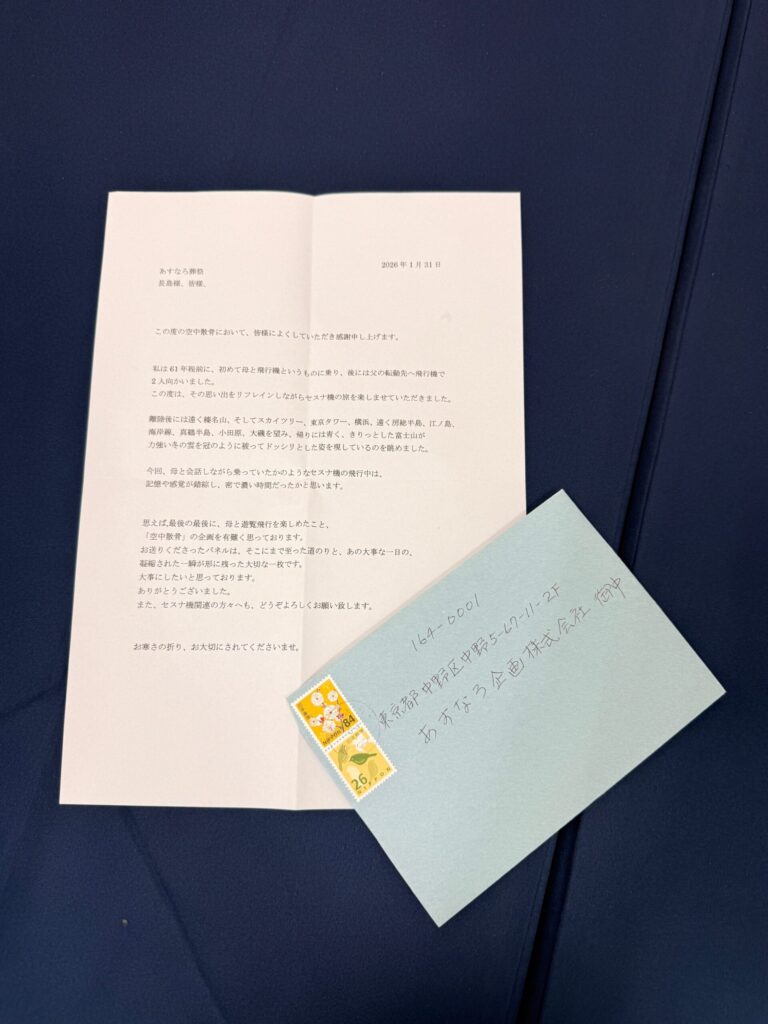 2026年1月31日
あすなろ葬祭
長島様、皆様、
この度の空中散骨において、皆様によくしていただき感謝申し上げます。
私は61年程前に、初めて母と飛行機というものに乗り、後には父の転勤先へ飛行機で
2人向かいました。
この度は、その思い出をリフレインしながらセスナ機の旅を楽しませていただきました。
離陸後には遠く榛名山、そしてスカイツリー、東京タワー、横浜、遠く房総半島、江ノ島、
海岸線、真鶴半島、小田原、大磯を望み、帰りには青く、きりっとした富士山が
力強い冬の雲を冠のように被ってドッシリとした姿を現しているのを眺めました。
今回、母と会話しながら乗っていたかのようなセスナ機の飛行中は、
記憶や感覚が錯綜し、密で濃い時間だったかと思います。
思えば、最後の最後に、母と遊覧飛行を楽しめたこと、
「空中散骨」の企画を有難く思っております。
お送りくださったパネルは、そこにまで至った道のりと、あの大事な一日の、
凝縮された一瞬が形に残った大切な一枚です。
大事にしたいと思っております。
ありがとうございました。
また、セスナ機関連の方々へも、どうぞよろしくお願い致します。
お寒さの折り、お大切にされてくださいませ。
164-0001
東京都中野区中野5-67-11-2F
あすなろ企画株式会社 御中
NIPPON 84
26
NIPPON